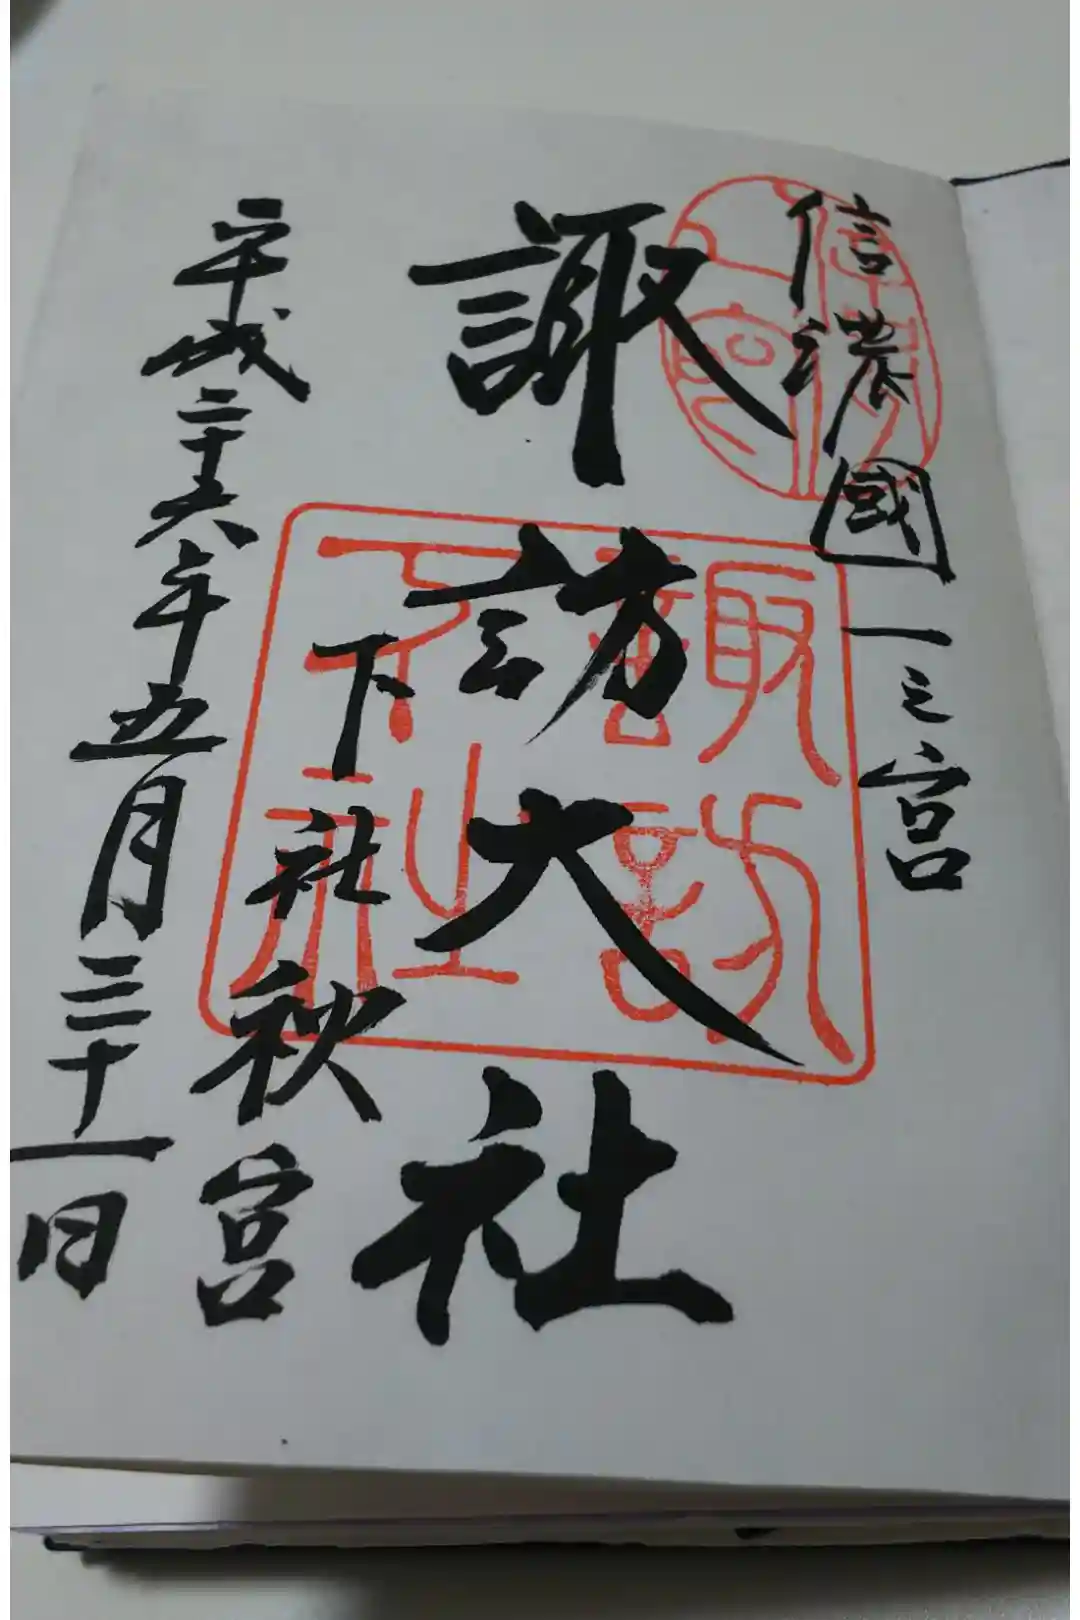 信濃國一之宮
諏訪大社
下社秋宮
平成二十六年五月三十一日
諏訪大社下社